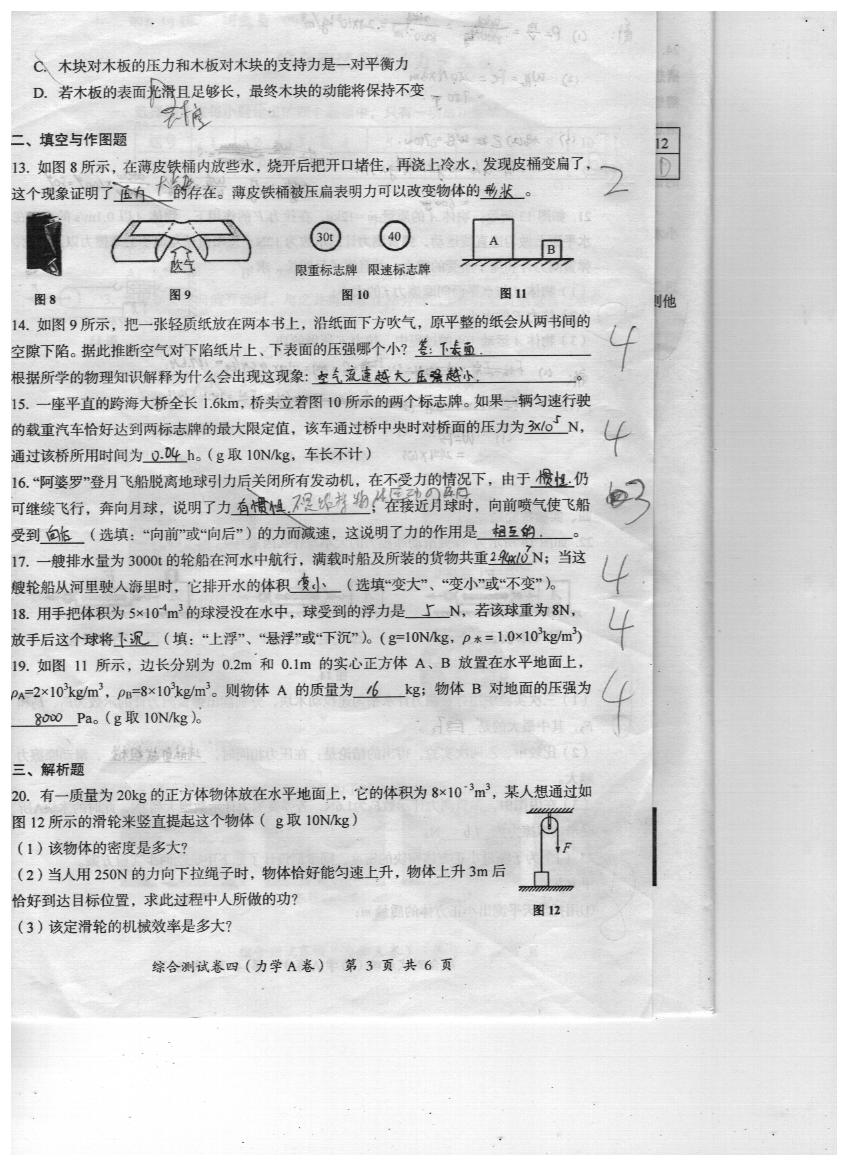 C. 木块对木板的压力和木板对木块的支持力是一对平衡力
D. 若木板的表面光滑且足够长，最终木块的动能将保持不变
二、填空与作图题
13. 如图 8 所示，在薄皮铁桶内放些水，烧开后把开口堵住，再浇上冷水，发现皮桶变扁了，
2
这个现象证明了 压力 大气压 的存在。薄皮铁桶被压扁表明力可以改变物体的 形状 。
吹气
30t
40
A
B
限重标志牌 限速标志牌
图 8
图 9
图 10
图 11
14. 如图 9 所示，把一张轻质纸放在两本书上，沿纸面下方吹气，原平整的纸会从两书间的
空隙下陷。据此推断空气对下陷纸片上、下表面的压强哪个小？ 答: 下表面.
4
根据所学的物理知识解释为什么会出现这现象: 空气流速越大,压强越小. 。
15. 一座平直的跨海大桥全长 1.6km，桥头立着图 10 所示的两个标志牌。如果一辆匀速行驶
的载重汽车恰好达到两标志牌的最大限定值，该车通过桥中央时对桥面的压力为 3×10⁵ N，
4
通过该桥所用时间为 0.04 h。( g 取 10N/kg，车长不计 )
16. “阿婆罗”登月飞船脱离地球引力后关闭所有发动机，在不受力的情况下，由于 惯性. 仍
可继续飞行，奔向月球，说明了力 有惯性. 不是维持物体运动的原因 ；在接近月球时，向前喷气使飞船
3
受到 向后 ( 选填：“向前”或“向后” ) 的力而减速，这说明了力的作用是 相互的. 。
17. 一艘排水量为 3000t 的轮船在河水中航行，满载时船及所装的货物共重 2.94×10⁷ N；当这
艘轮船从河里驶人海里时，它排开水的体积 变小 ( 选填“变大”、“变小”或“不变” )。
4
18. 用手把体积为 5×10⁻⁴m³ 的球浸没在水中，球受到的浮力是 5 N，若该球重为 8N，
放手后这个球将 下沉 ( 填：“上浮”、“悬浮”或“下沉” )。( g=10N/kg，ρ水 = 1.0×10³kg/m³)
4
19. 如图 11 所示，边长分别为 0.2m 和 0.1m 的实心正方体 A、B 放置在水平地面上，
ρA=2×10³kg/m³，ρB=8×10³kg/m³。则物体 A 的质量为 16 kg；物体 B 对地面的压强为
4
8000 Pa。( g 取 10N/kg )。
三、解析题
20. 有一质量为 20kg 的正方体物体放在水平地面上，它的体积为 8×10⁻³m³，某人想通过如
图 12 所示的滑轮来竖直提起这个物体 ( g 取 10N/kg )
( 1 ) 该物体的密度是多大?
( 2 ) 当人用 250N 的力向下拉绳子时，物体恰好能匀速上升，物体上升 3m 后
恰好到达目标位置，求此过程中人所做的功?
( 3 ) 该定滑轮的机械效率是多大?
F
图 12
综合测试卷四 ( 力学 A 卷 ) 第 3 页 共 6 页
12
D
别他